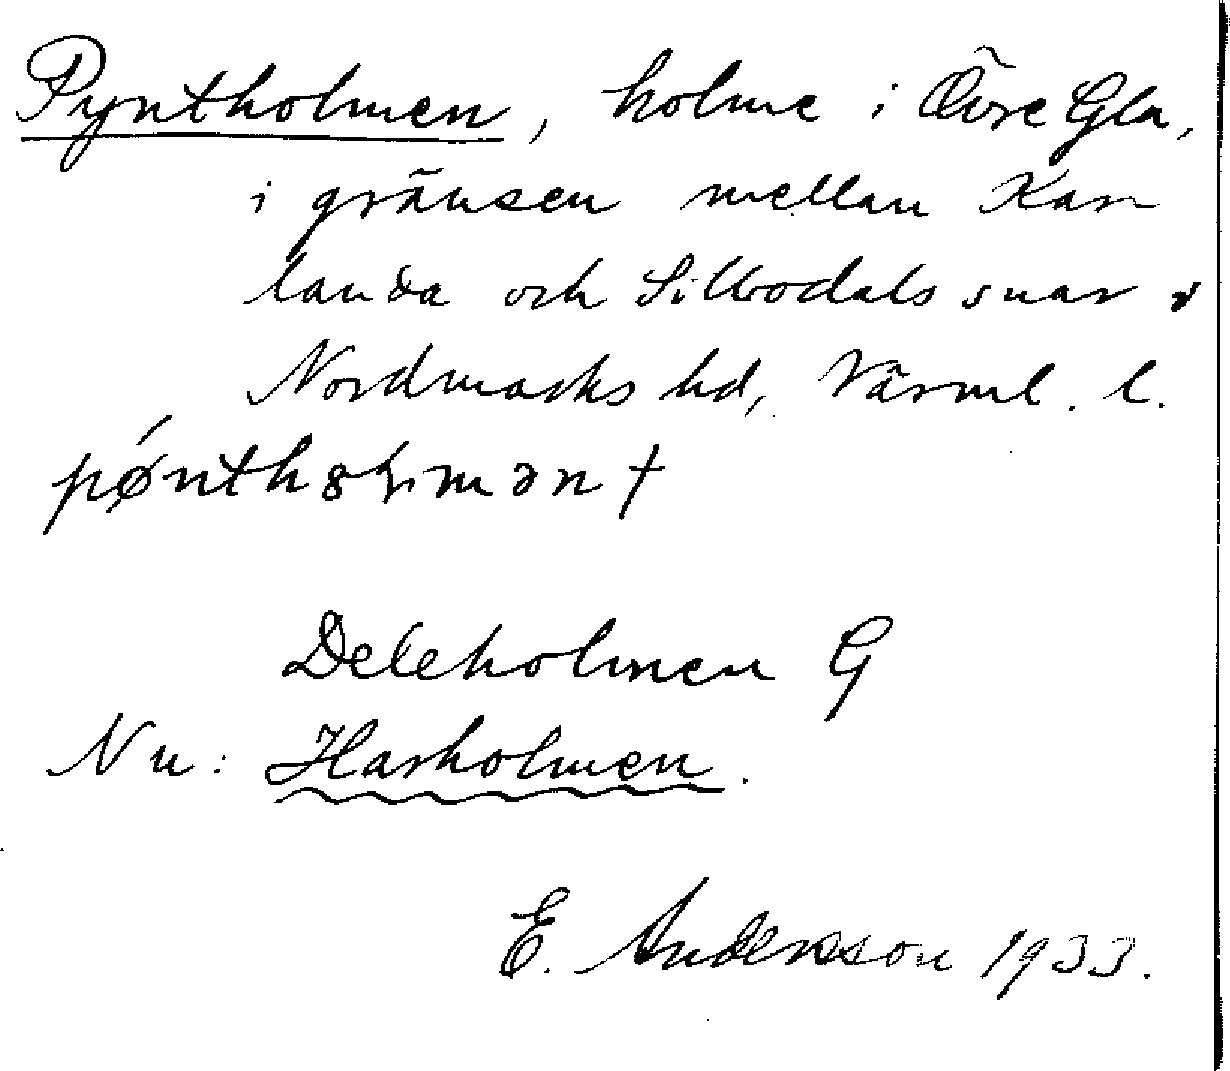 Pyntholmen, holme i Övre Gla,
i gränsen mellan Kar-
landa och Silbodals snar i
Nordmarks hd, Värml. l.
Deleholmen G
Nu: Harholmen.
E. Andersson 1933.